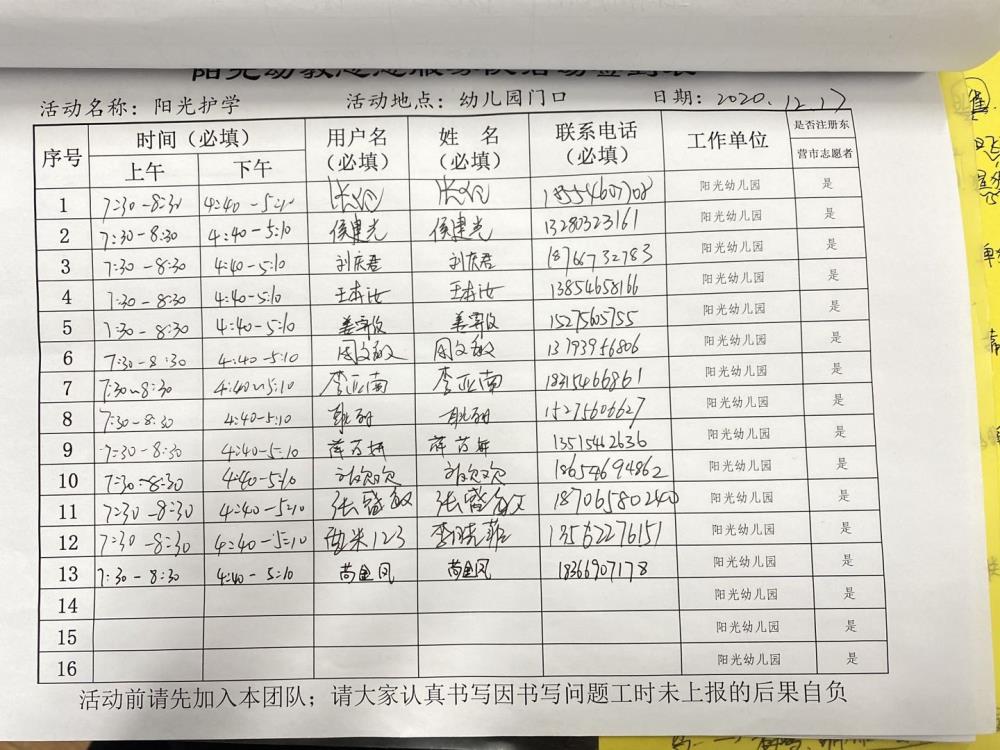 活动名称：阳光护学 活动地点：幼儿园门口 日期：2020.12.17
序号 时间（必填） 用户名（必填） 姓 名（必填） 联系电话（必填） 工作单位 是否注册东营市志愿者
上午 下午
1 7:30-8:30 4:40-5:10 18554607708 阳光幼儿园 是
2 7:30-8:30 4:40-5:10 侯建光 侯建光 13280323161 阳光幼儿园 是
3 7:30-8:30 4:40-5:10 刘庆君 刘庆君 18766732783 阳光幼儿园 是
4 7:30-8:30 4:40-5:10 王春汝 王春汝 13854658166 阳光幼儿园 是
5 7:30-8:30 4:40-5:10 15275605755 阳光幼儿园 是
6 7:30-8:30 4:40-5:10 周文敏 周文敏 13793956806 阳光幼儿园 是
7 7:30~8:30 4:40~5:10 李亚南 李亚南 18315466861 阳光幼儿园 是
8 7:30-8:30 4:40-5:10 15275606627 阳光幼儿园 是
9 7:30-8:30 4:40-5:10 薛芳妍 薛芳妍 1351542636 阳光幼儿园 是
10 7:30-8:30 4:40-5:10 刘欢欢 刘欢欢 18654694862 阳光幼儿园 是
11 7:30-8:30 4:40-5:10 张 敏 张 敏 18706580240 阳光幼儿园 是
12 7:30-8:30 4:40-5:10 米123 李晓菲 13562276151 阳光幼儿园 是
13 7:30-8:30 4:40-5:10 尚金凤 尚金凤 18366907178 阳光幼儿园 是
14 阳光幼儿园 是
15 阳光幼儿园 是
16 阳光幼儿园 是
活动前请先加入本团队；请大家认真书写因书写问题工时未上报的后果自负